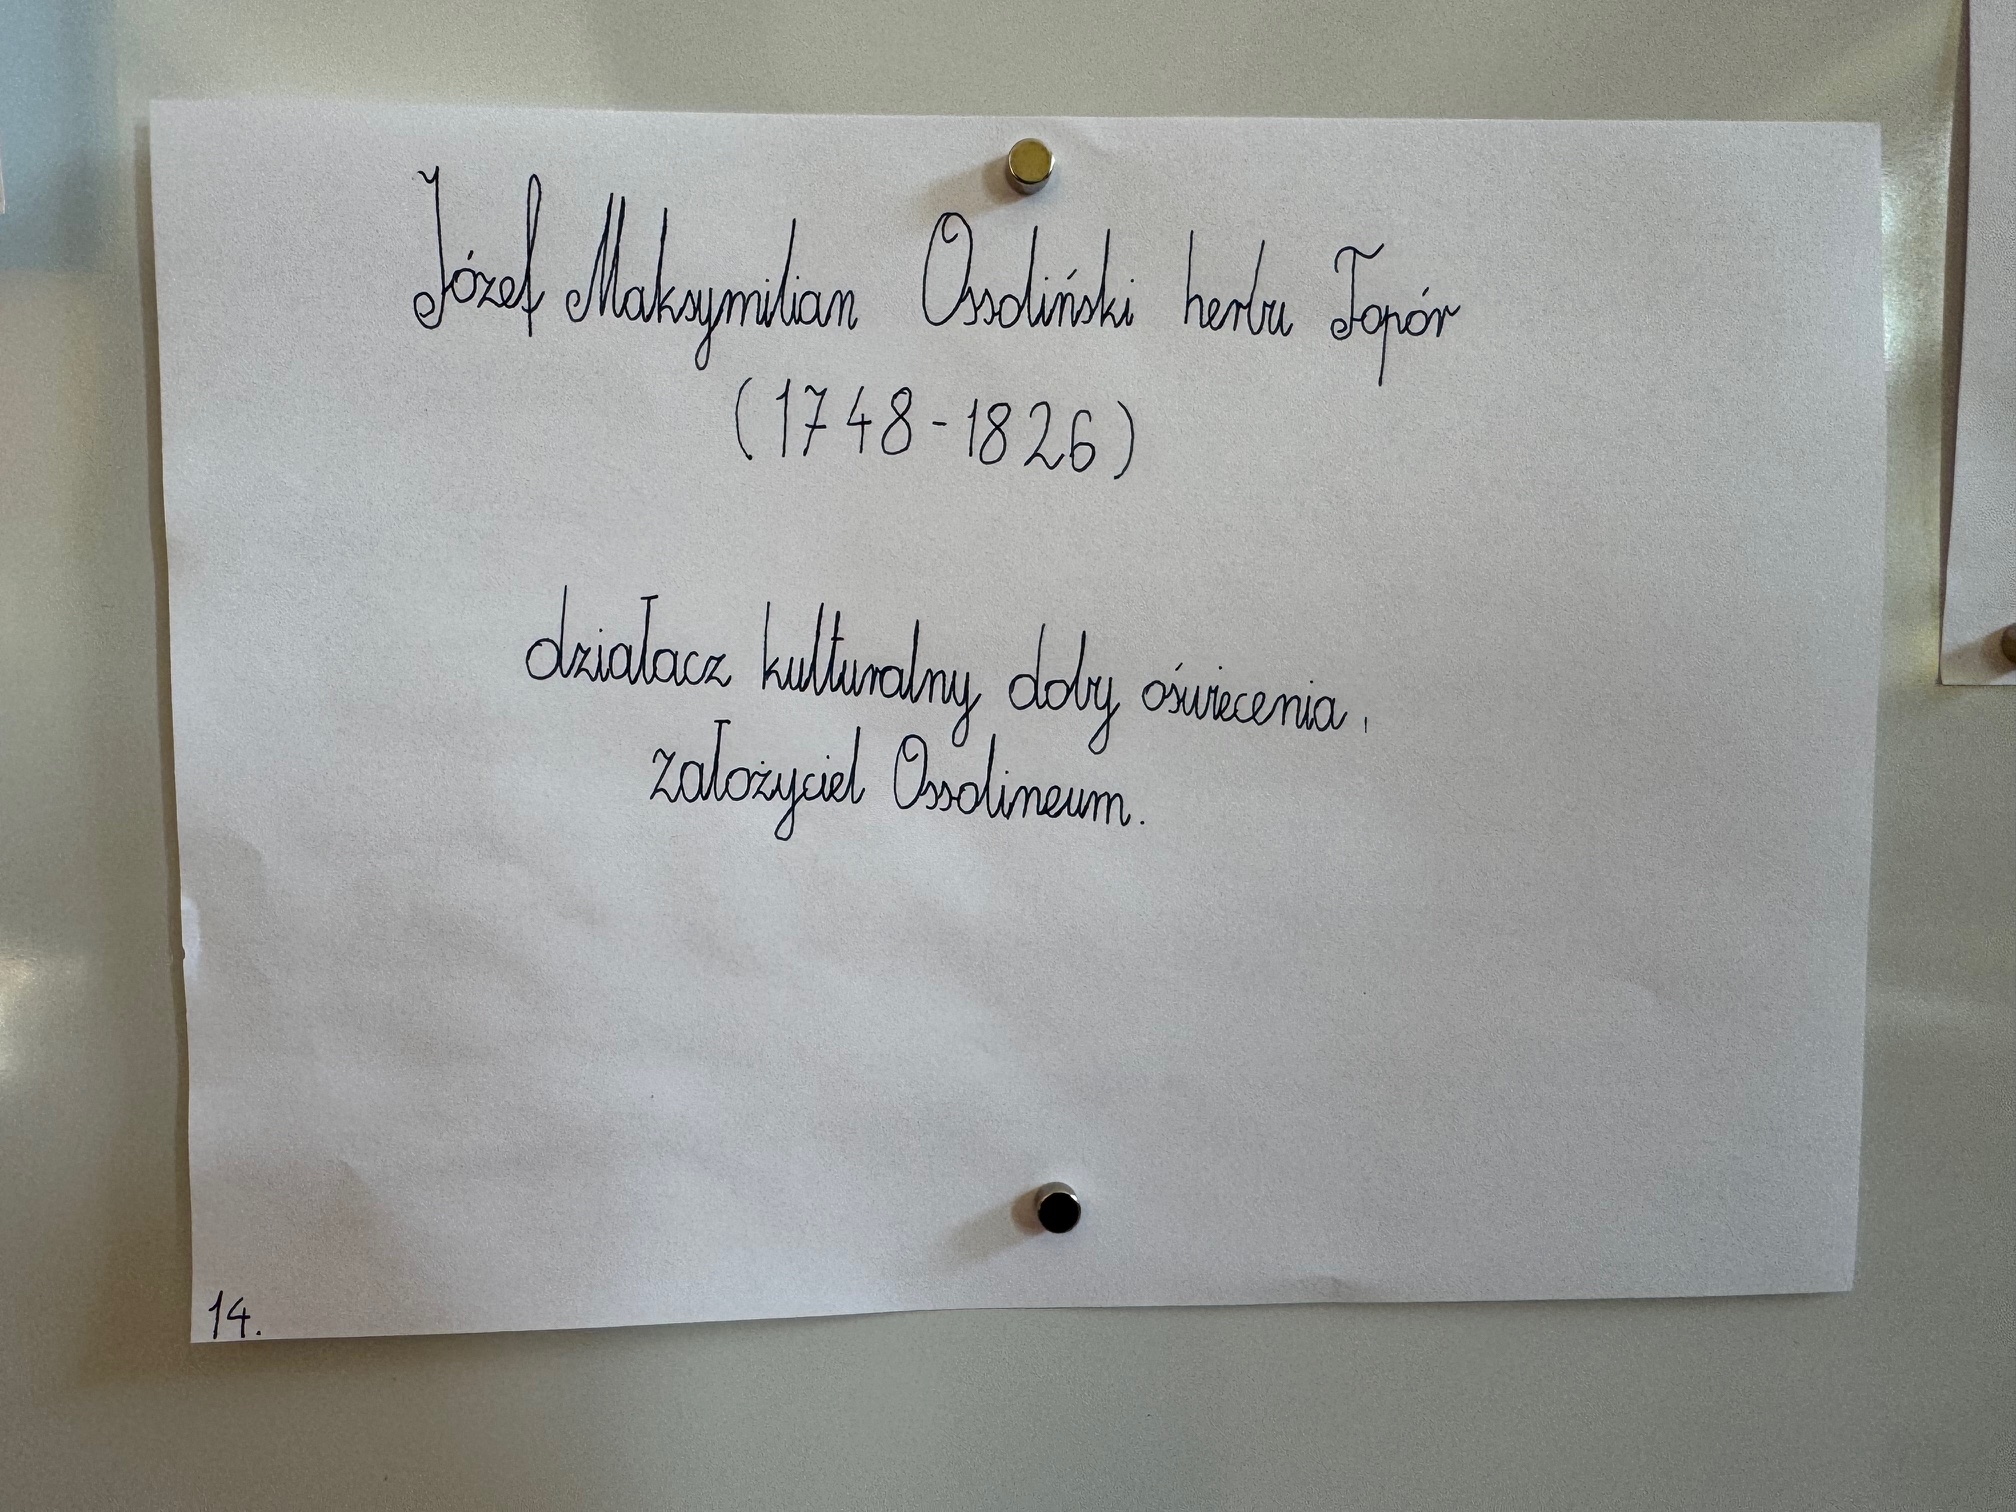 Józef Maksymilian Ossoliński herbu Topór
(1748-1826)
działacz kulturalny doby oświecenia,
założyciel Ossolineum.
14.